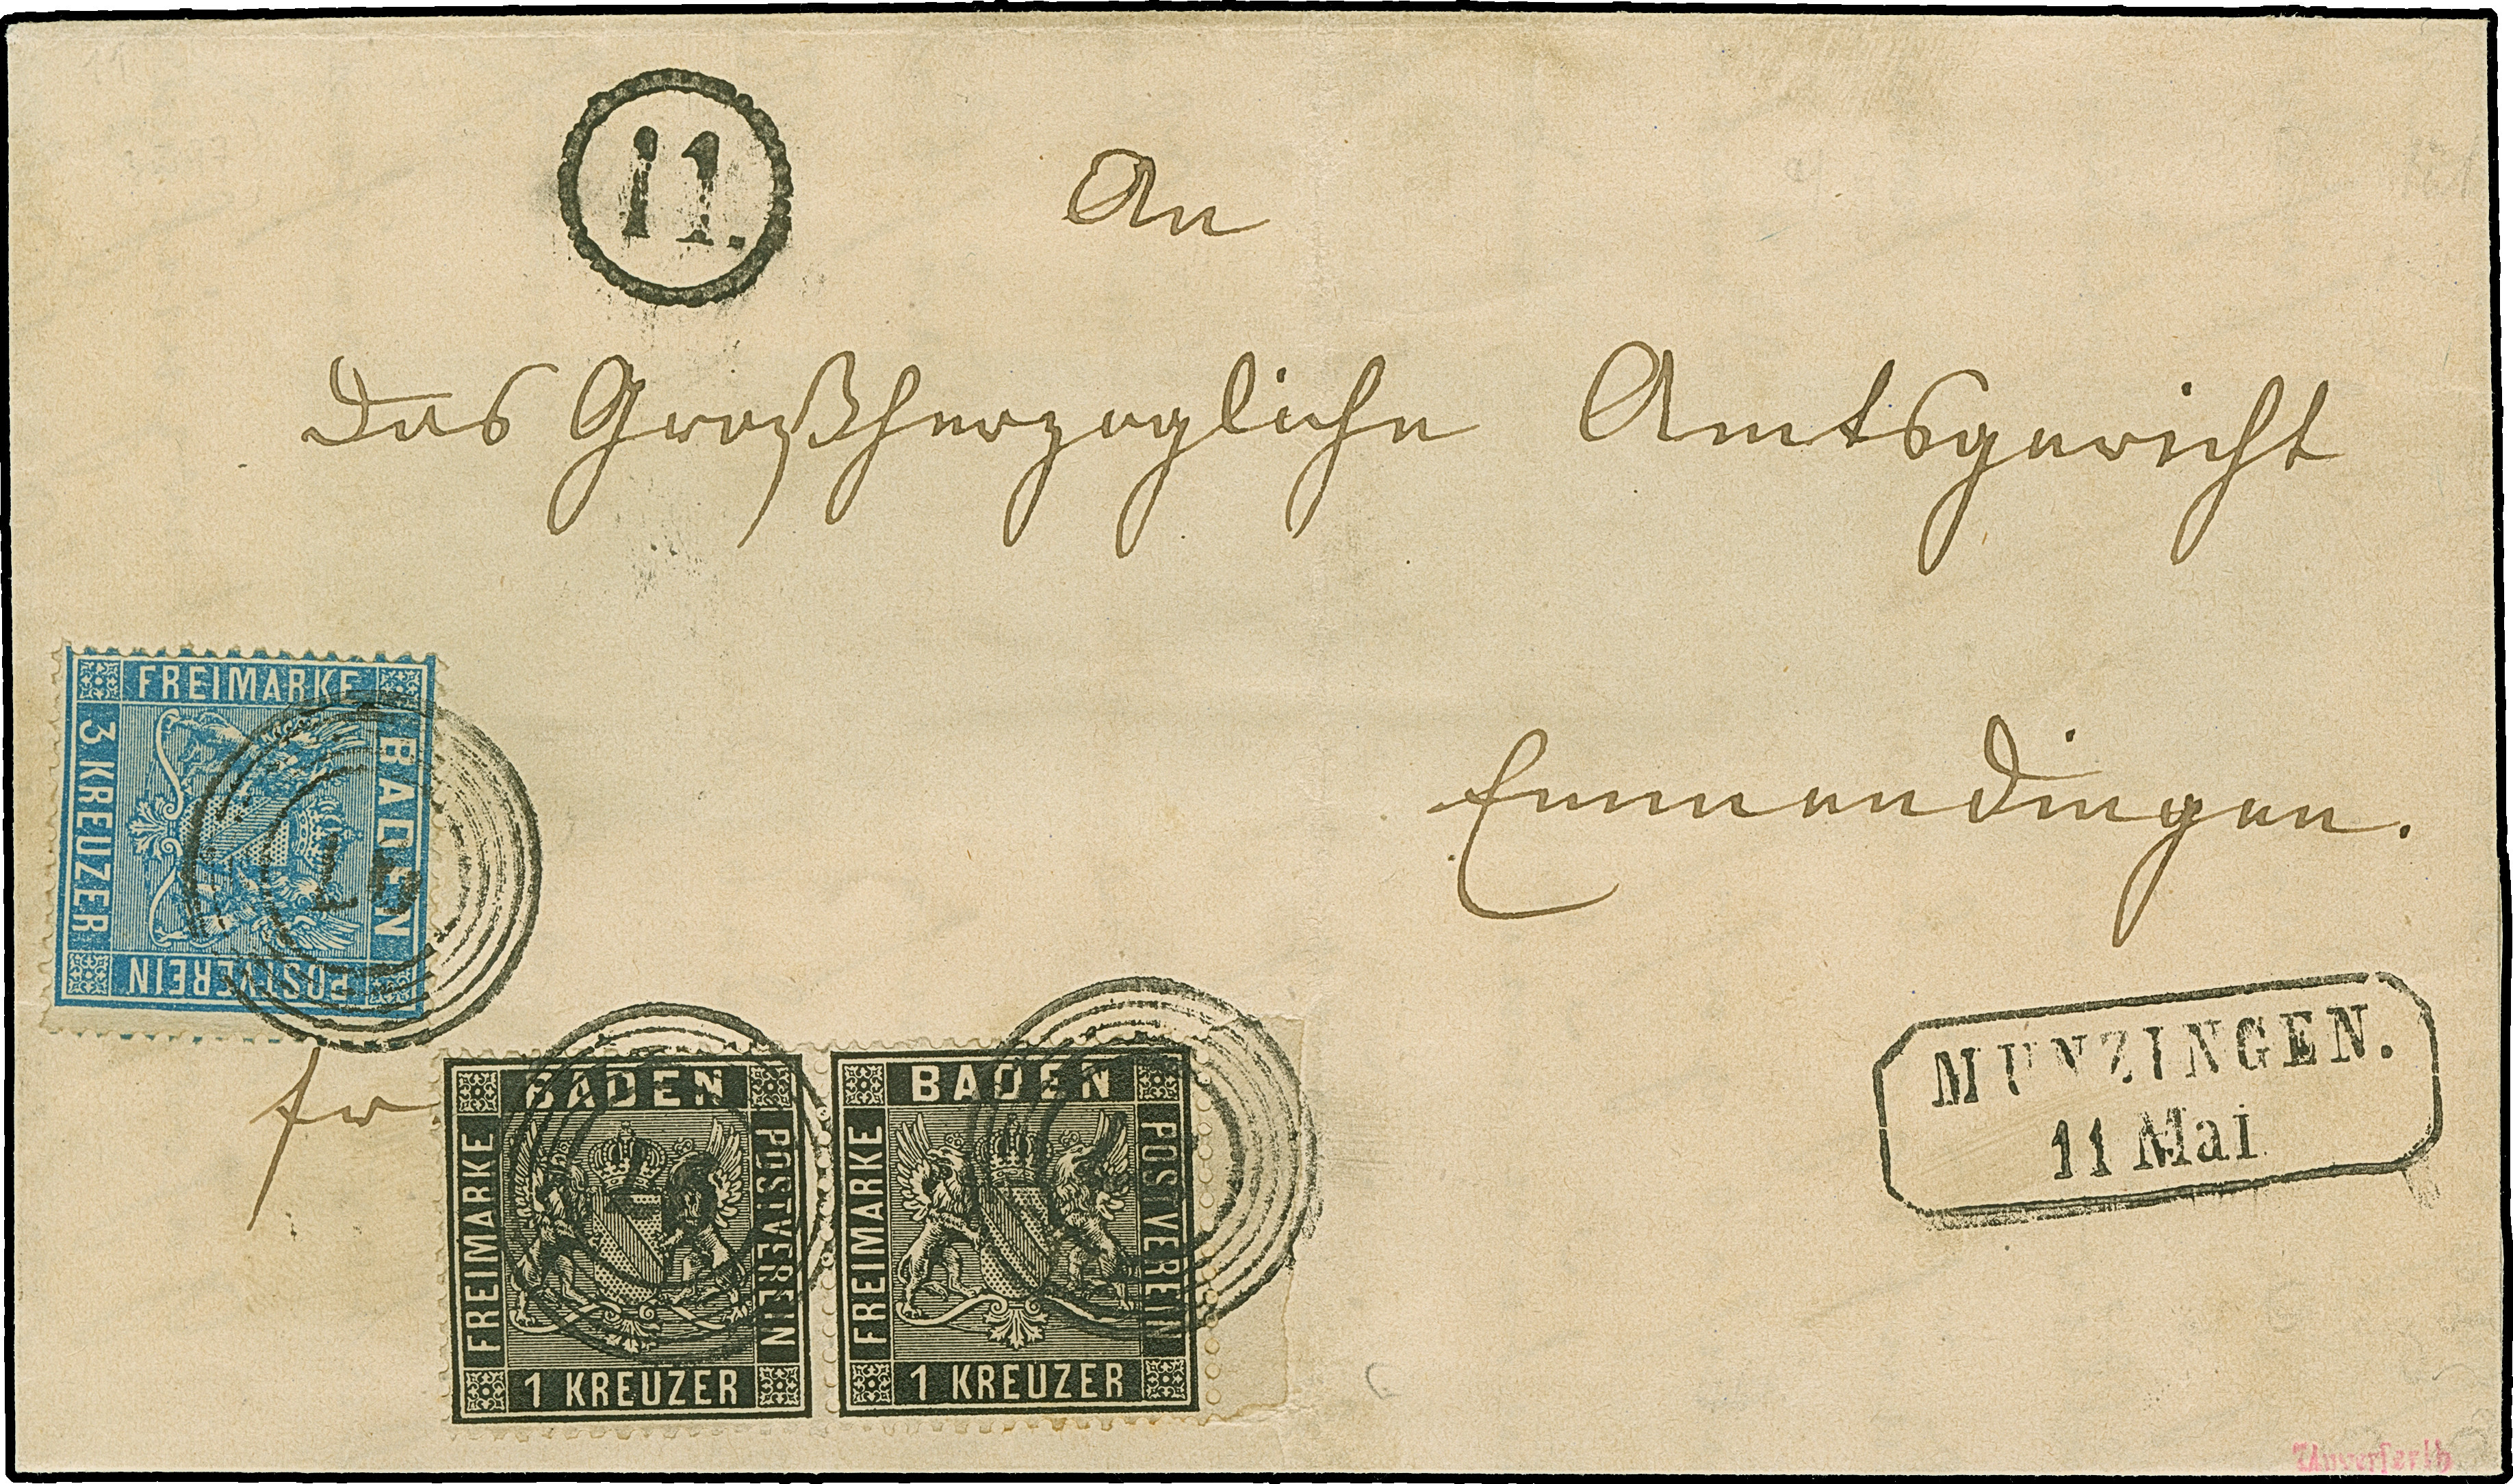 11.
An
das Großherzogliche Amtsgericht
Emmendingen.
FREIMARKE
BADEN
3 KREUZER
POSTVEREIN
fr
BADEN
FREIMARKE
POSTVEREIN
1 KREUZER
BADEN
FREIMARKE
POSTVEREIN
1 KREUZER
MUNZINGEN.
11 Mai